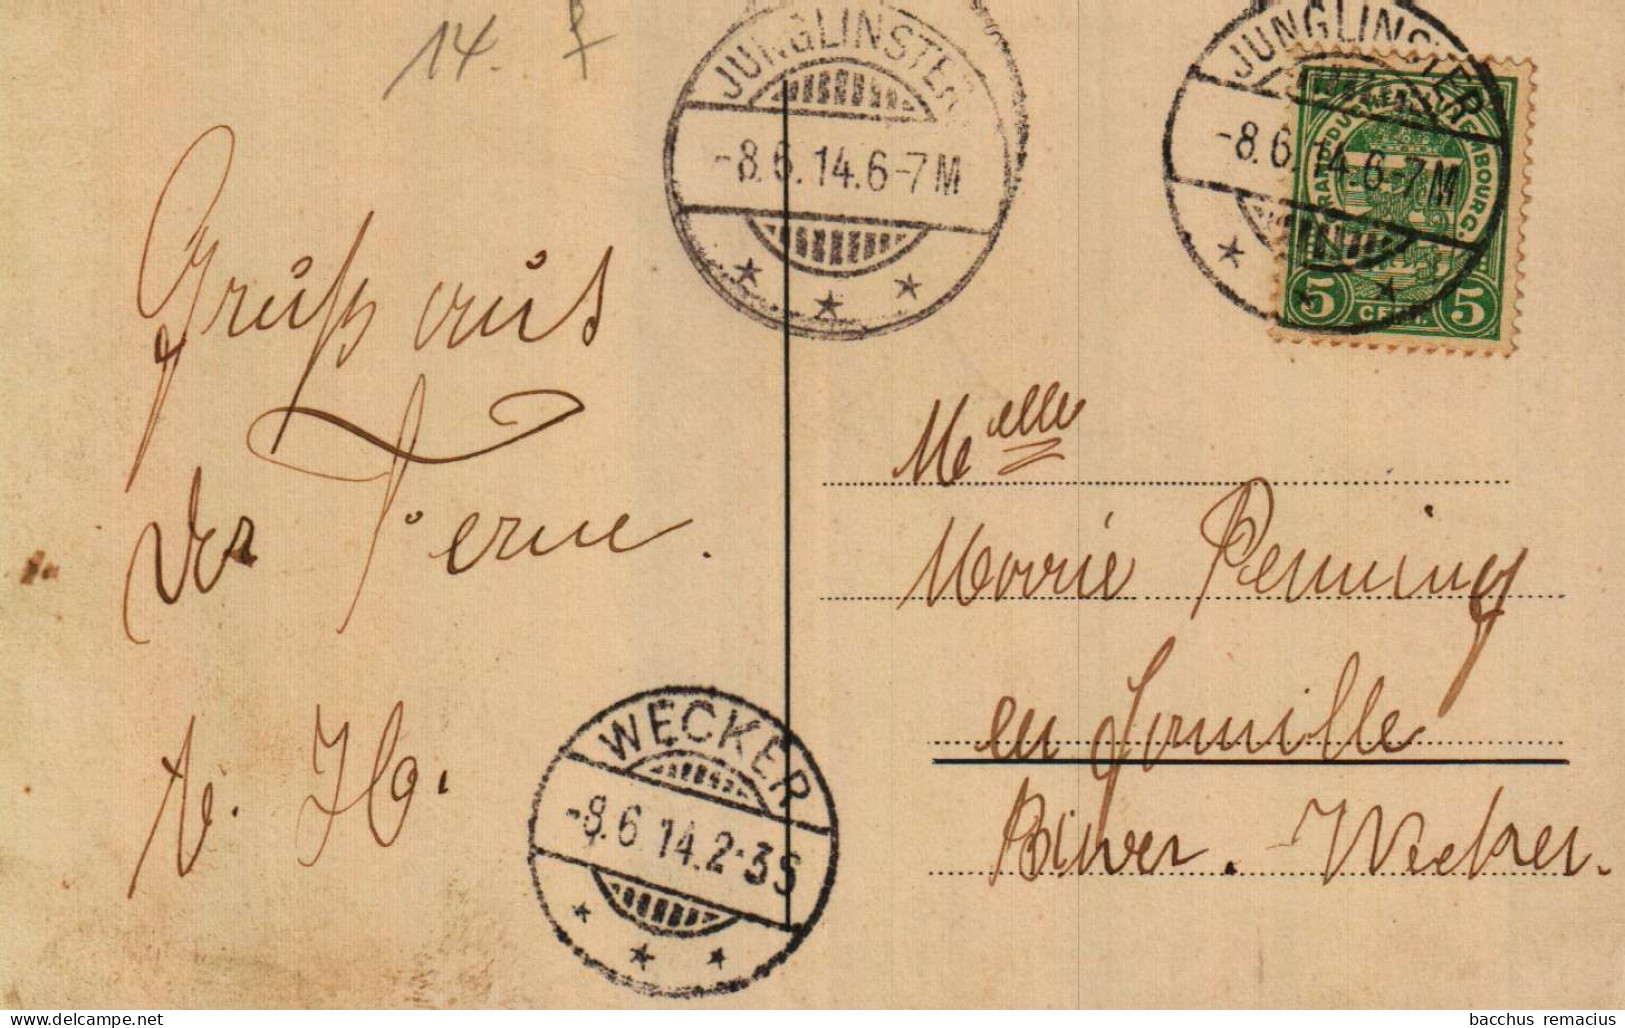 14. f
JUNGLINSTER
-8.6.14.6-7M
JUNGLINSTER
-8.6.14.6-7M
GRAND DUCHÉ DE LUXEMBOURG.
5 CENT. 5
Gruß aus
der Ferne.
WECKER
-8.6 14.2-3S
Melle
Marie Penning
en famille
Biwer. - Wecker.
delcampe.net
bacchus remacius